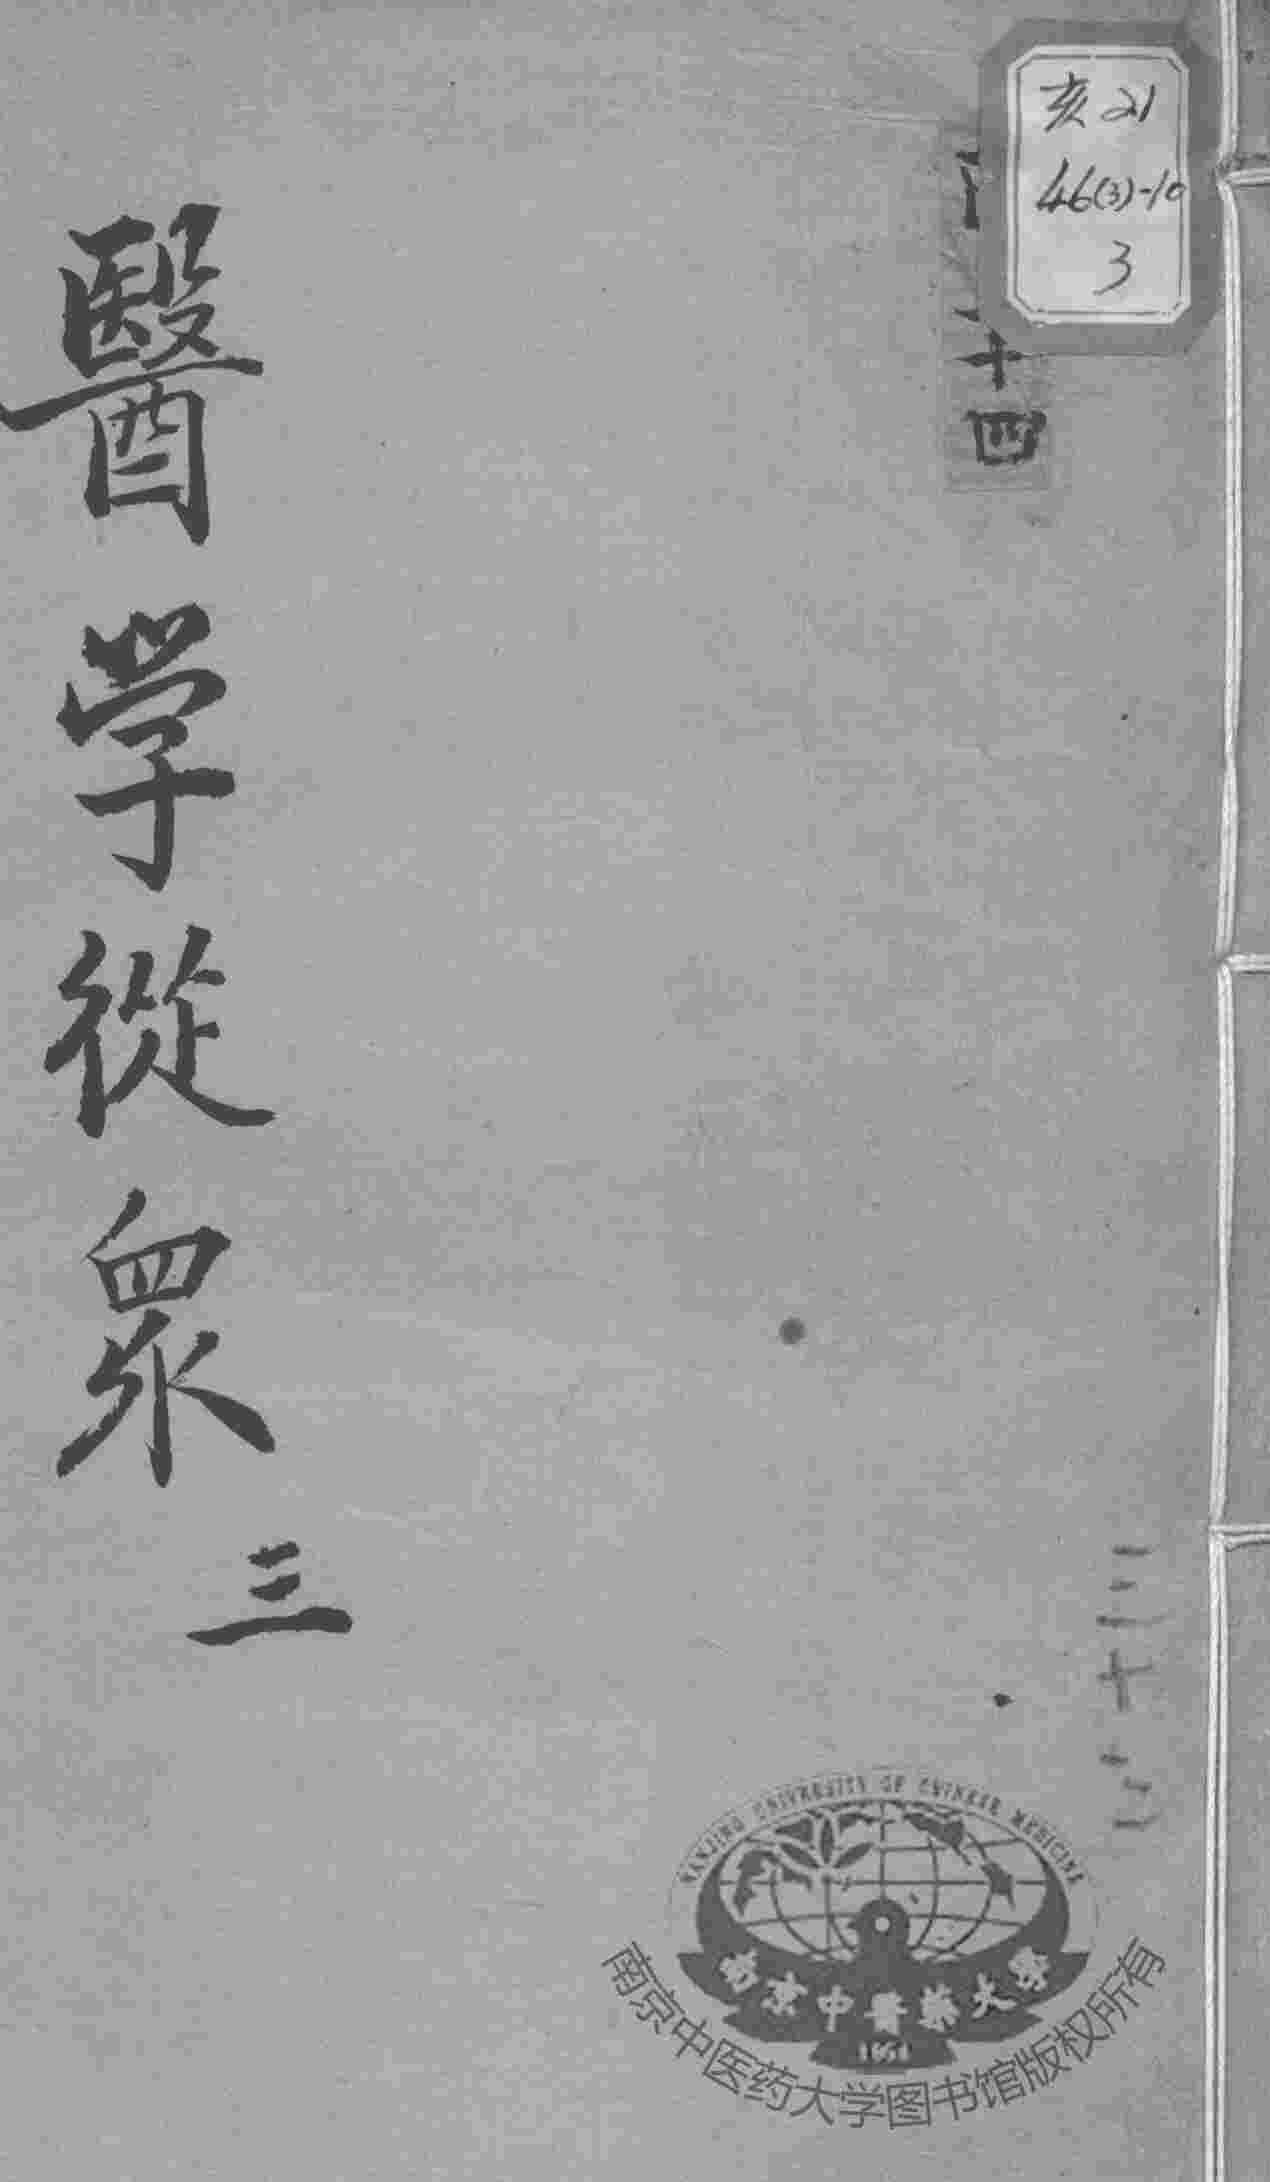 亥21
46(3)-10
3
十四
醫學從眾
三
三十二
NANJING UNIVERSITY OF CHINESE MEDICINE
南京中醫藥大學
1954
南京中医药大学图书馆版权所有